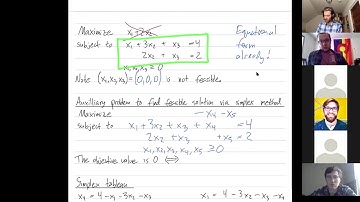 Maximize x₁+2x₂
subject to x₁ + 3x₂ + x₃ = 4
2x₂ + x₃ = 2
x₁,x₂,x₃ ≥ 0
Equational
form
already!
Note (x₁,x₂,x₃) = (0,0,0) is not feasible.
Auxiliary problem to find feasible solution via simplex method
Maximize - x₄ - x₅
subject to x₁ + 3x₂ + x₃ + x₄ = 4
2x₂ + x₃ + x₅ = 2
x₁,x₂,x₃,x₄,x₅ ≥ 0
The objective value is 0 ⟺
Simplex tableau
x₄ = 4 - x₁ - 3x₂ - x₃ x₁ = 4 - 3x₂ - x₃ - x₄